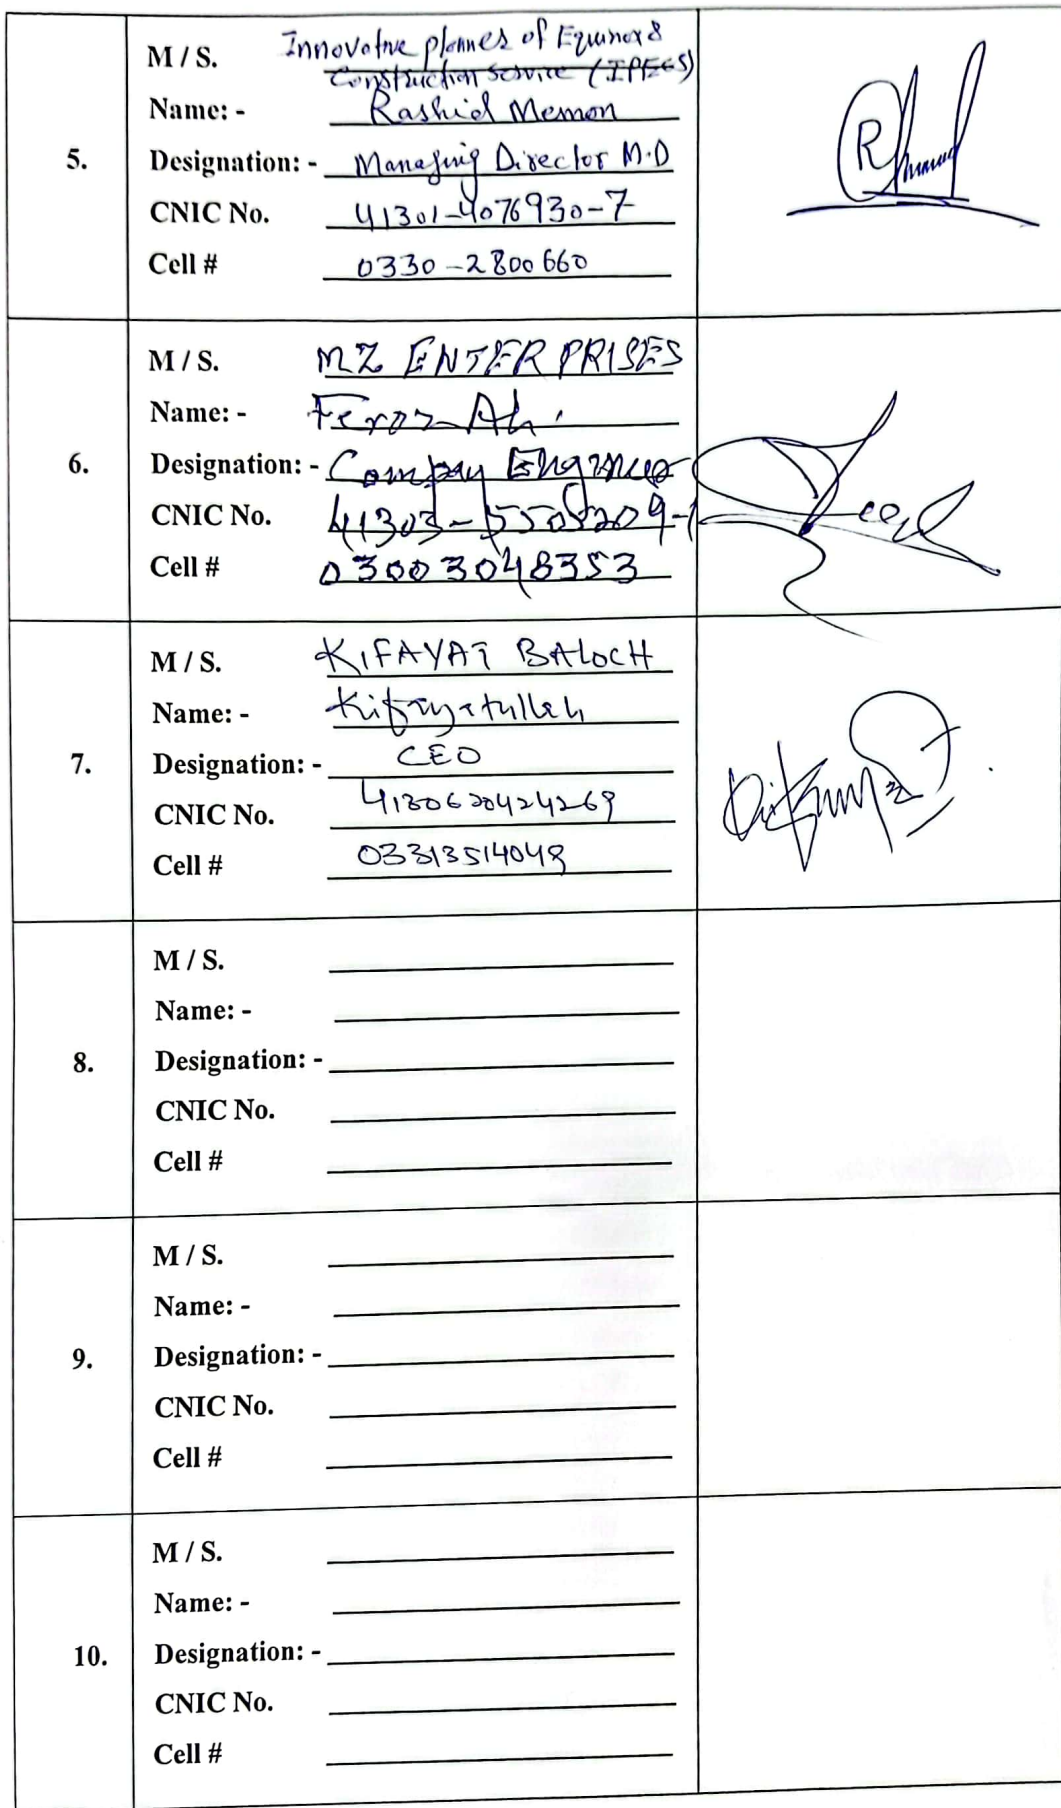 5.
M / S. Innovative plannes of Equinox &
Construction Service (IPECS)
Name: - Rashid Memon
Designation: - Managing Director M.D
CNIC No. 41301-4076930-7
Cell # 0330-2800660
6.
M / S. MZ ENTERPRISES
Name: - Feroz Ali
Designation: - Company Engineer
CNIC No. 41303-5508209-1
Cell # 03003048353
7.
M / S. KIFAYAT BALOCH
Name: - Kifayatullah
Designation: - CEO
CNIC No. 4130620424269
Cell # 03313514049
8.
M / S.
Name: -
Designation: -
CNIC No.
Cell #
9.
M / S.
Name: -
Designation: -
CNIC No.
Cell #
10.
M / S.
Name: -
Designation: -
CNIC No.
Cell #